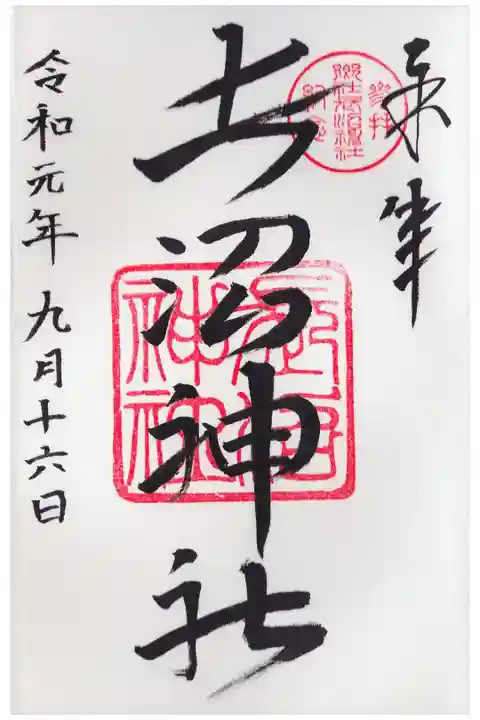 奉拝
参拝
郷社長沼神社
紀念
長沼神社
長沼
神社
令和元年九月十六日